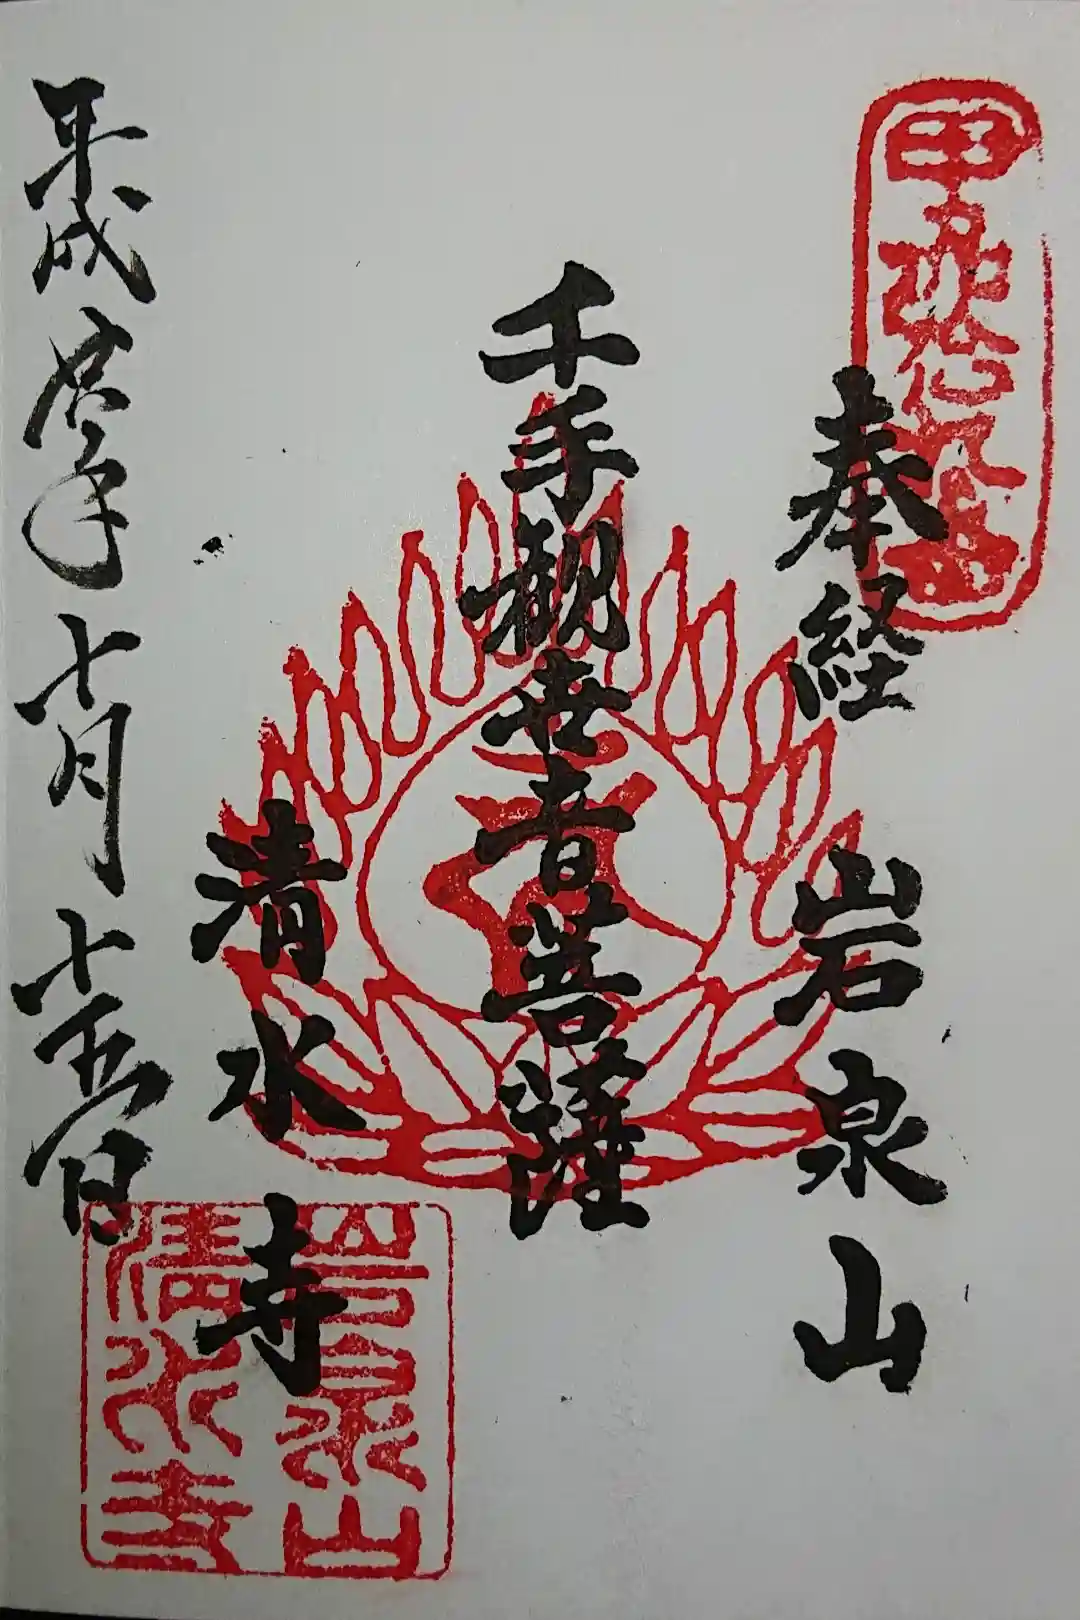 奉経 岩泉山
千手観世音菩薩
清水寺
平成 年七月十五日
岩泉山
清水寺